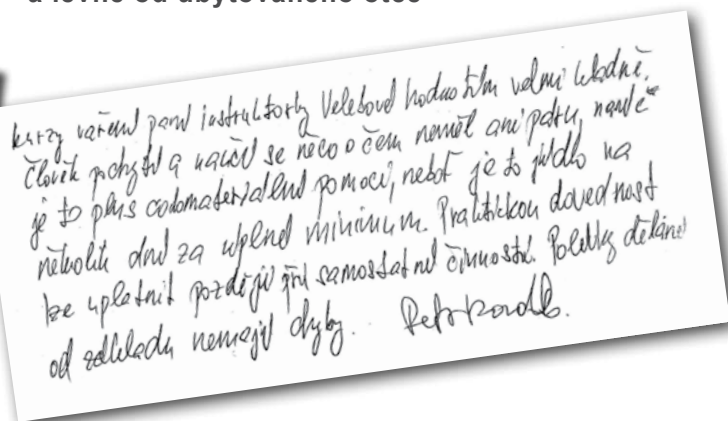 a levně od ubytovaného otce
kurzy vaření paní instruktorky Velebové hodnotím velmi kladně.
Člověk pochytil a naučil se něco o čem neměl ani páru, navíc
je to plus co do materiální pomoci, neboť je to jídlo na
několik dní za úplné minimum. Praktickou dovednost
lze uplatnit později při samostatné činnosti. Polévky dělané
od základu nemají chyby.